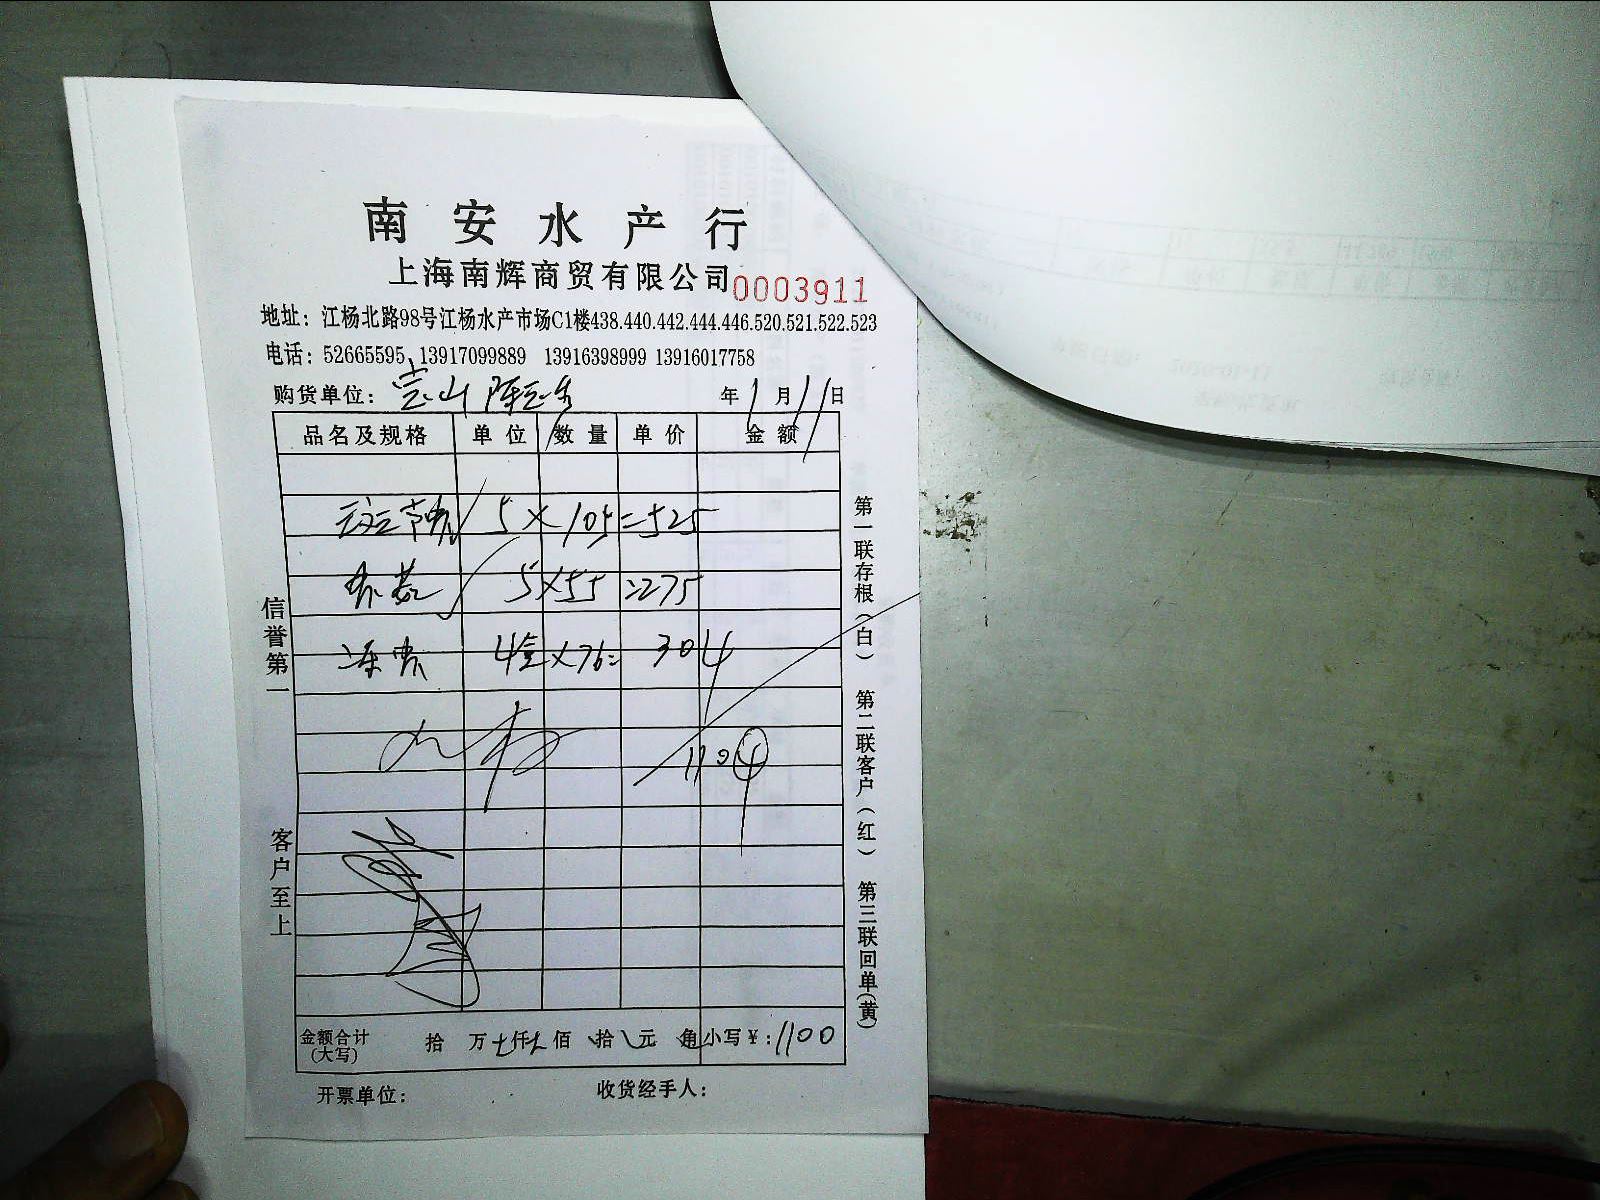 南安水产行
上海南辉商贸有限公司 0003911
地址：江杨北路98号江杨水产市场C1楼438.440.442.444.446.520.521.522.523
电话：52665595、13917099889 13916398999 13916017758
购货单位： 年1月11日
品名及规格 单位 数量 单价 金额
5×105=525
5×55=275
4盒×76= 304
1104
金额合计(大写) 拾 万 仟 佰 拾 元 角 小写¥:1100
开票单位： 收货经手人：
信誉第一
客户至上
第一联存根(白) 第二联客户(红) 第三联回单(黄)